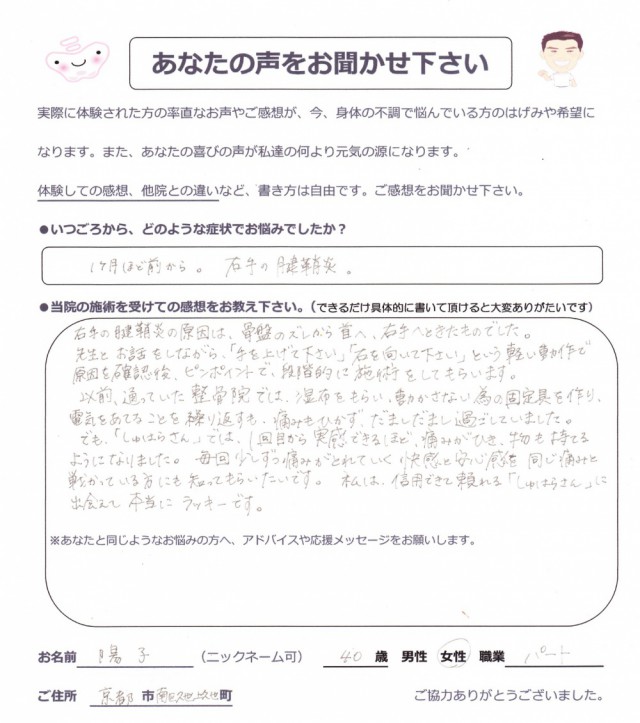 あなたの声をお聞かせ下さい
実際に体験された方の率直なお声やご感想が、今、身体の不調で悩んでいる方のはげみや希望に
なります。また、あなたの喜びの声が私達の何より元気の源になります。
体験しての感想、他院との違いなど、書き方は自由です。ご感想をお聞かせ下さい。
●いつごろから、どのような症状でお悩みでしたか？
1ヶ月ほど前から。 右手の腱鞘炎。
●当院の施術を受けての感想をお教え下さい。（できるだけ具体的に書いて頂けると大変ありがたいです）
右手の腱鞘炎の原因は、骨盤のズレから首へ、右手へときたものでした。
先生とお話をしながら、「手を上げて下さい」「右を向いて下さい」という軽い動作で
原因を確認後、ピンポイントで、段階的に施術をしてもらいます。
以前、通っていた整骨院では、湿布をもらい、動かさない為の固定具を作り、
電気をあてることを繰り返すも、痛みもひかず、だましだまし過ごしていました。
でも、「しゅはらさん」では、1回目から実感できるほど、痛みがひき、物も持てる
ようになりました。 毎回少しずつ痛みがとれていく快感と安心感を同じ痛みと
戦かっている方にも知ってもらいたいです。 私は、信用できて頼れる「しゅはらさん」に
出会えて本当にラッキーです。
※あなたと同じようなお悩みの方へ、アドバイスや応援メッセージをお願いします。
お名前 陽子 （ニックネーム可） 40 歳 男性 女性 職業 パート
ご住所 京都 市 南区 町 ご協力ありがとうございました。